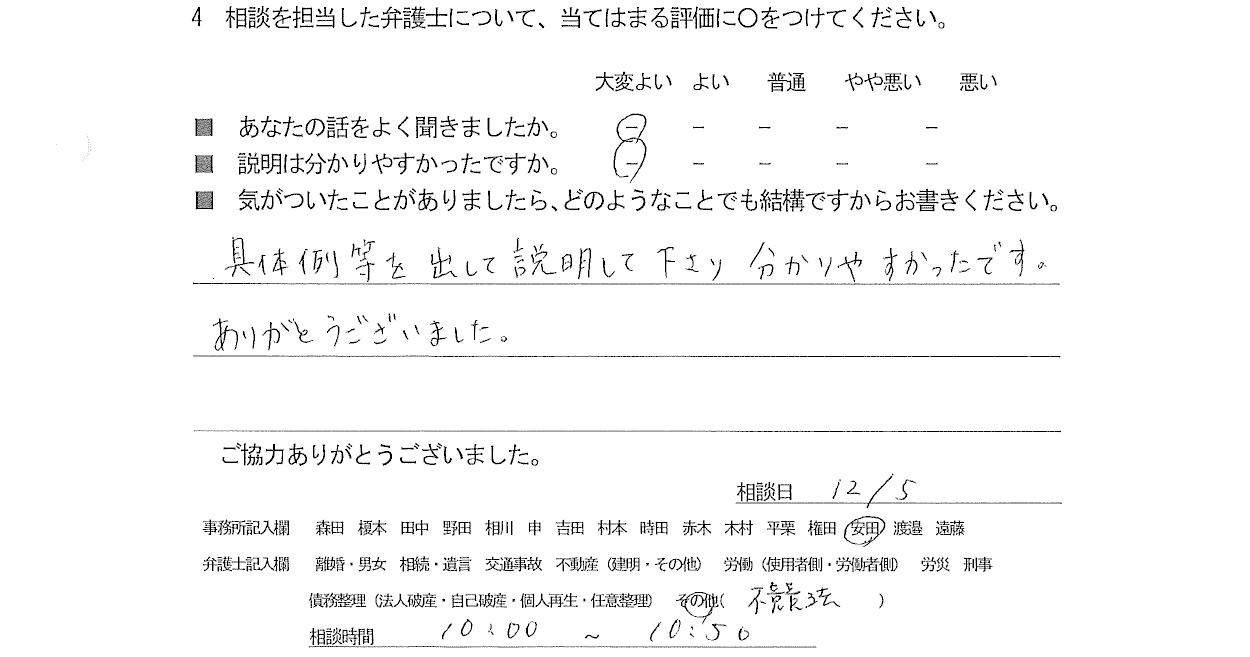 4 相談を担当した弁護士について、当てはまる評価に○をつけてください。
大変よい よい 普通 やや悪い 悪い
■ あなたの話をよく聞きましたか。 − − − − −
■ 説明は分かりやすかったですか。 − − − − −
■ 気がついたことがありましたら、どのようなことでも結構ですからお書きください。
具体例等を出して説明して下さり分かりやすかったです。
ありがとうございました。
ご協力ありがとうございました。
相談日 12/5
事務所記入欄 森田 榎本 田中 野田 相川 申 吉田 村本 時田 赤木 木村 平栗 権田 安田 渡邉 遠藤
弁護士記入欄 離婚・男女 相続・遺言 交通事故 不動産（建明・その他） 労働（使用者側・労働者側） 労災 刑事
債務整理（法人破産・自己破産・個人再生・任意整理） その他（ 不競法 ）
相談時間 10:00 ~ 10:50